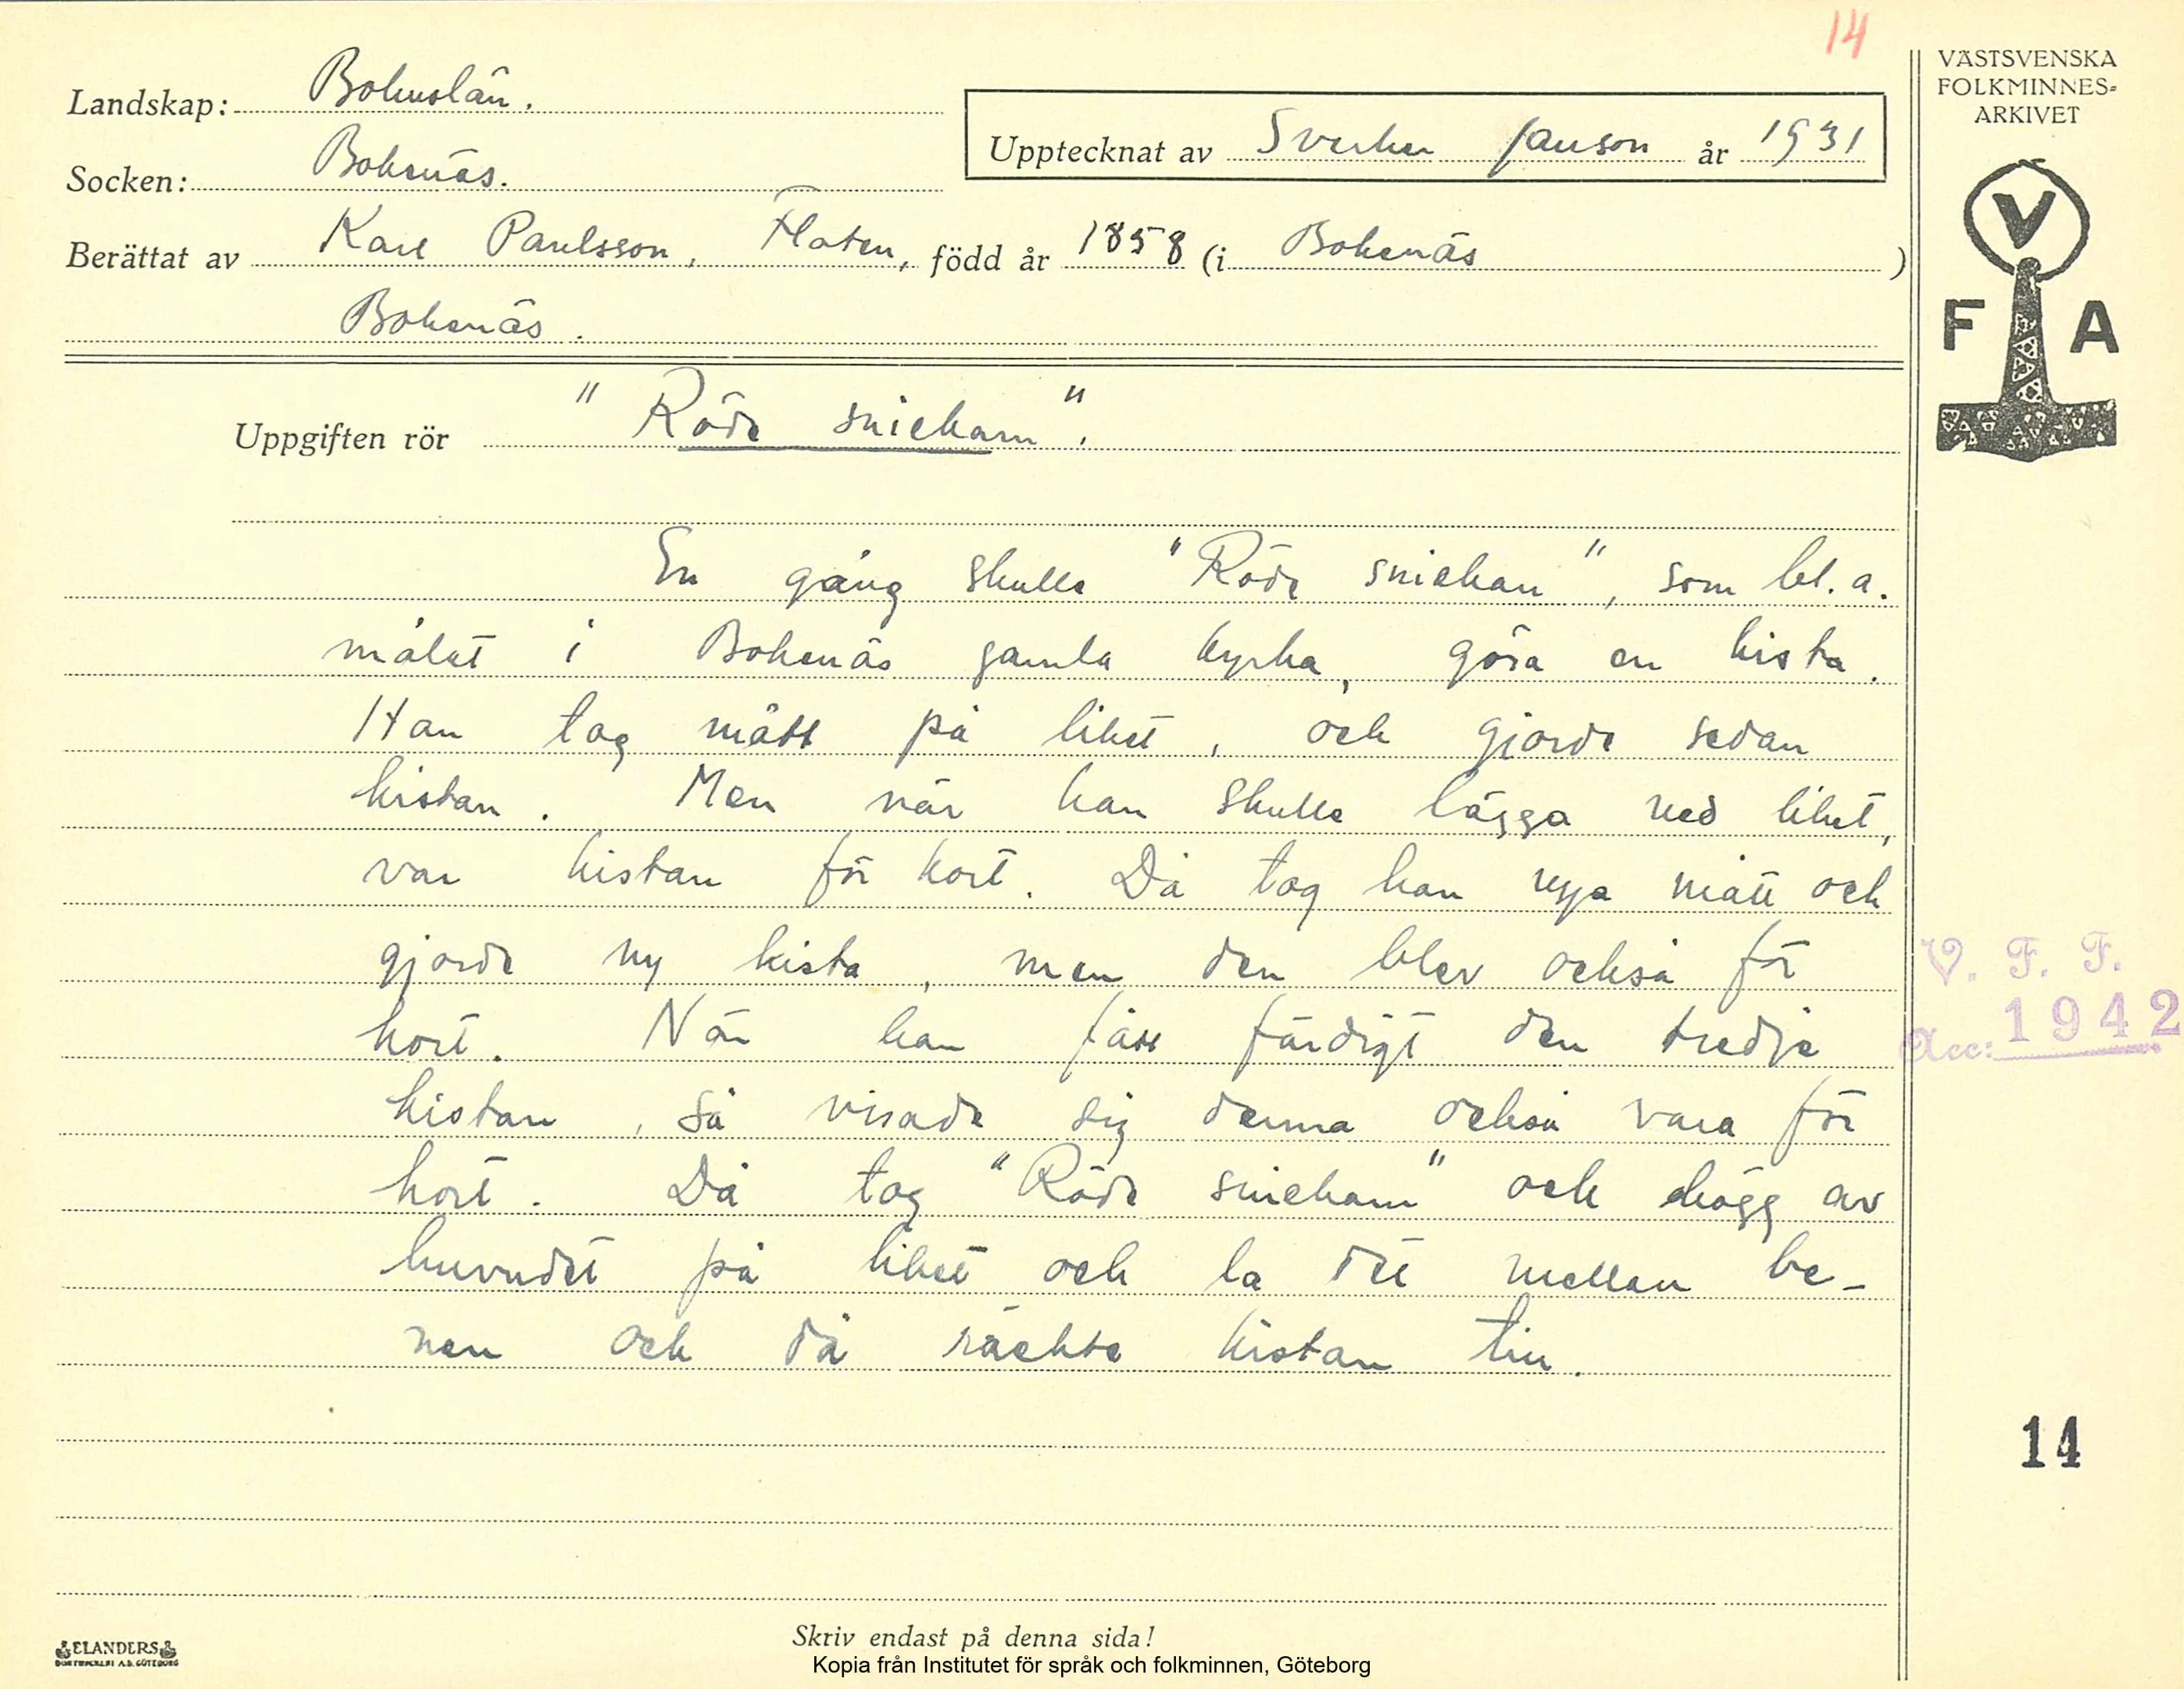 14
VÄSTSVENSKA
FOLKMINNES-
ARKIVET
Landskap: Bohuslän.
Upptecknat av Sverker Janson år 1931
Socken: Bokenäs.
Berättat av Karl Paulsson, Flaten, född år 1858 (i Bokenäs )
Bokenäs.
V
F A
Uppgiften rör "Röde snickarn".
En gång skulle "Röde snickan", som bl. a.
målat i Bokenäs gamla kyrka, göra en kista.
Han tog mått på liket, och gjorde sedan
kistan. Men när han skulle lägga ned liket,
var kistan för kort. Då tog han nya mått och
gjorde ny kista, men den blev också för
kort. När han fått färdigt den tredje
kistan, så visade sig denna också vara för
kort. Då tog "Röde snickarn" och högg av
huvudet på liket och la det mellan be-
nen och då räckte kistan till.
V. F. F.
Acc: 1942
14
Skriv endast på denna sida!
ELANDERS
BOKTRYCKERI A.B. GÖTEBORG
Kopia från Institutet för språk och folkminnen, Göteborg